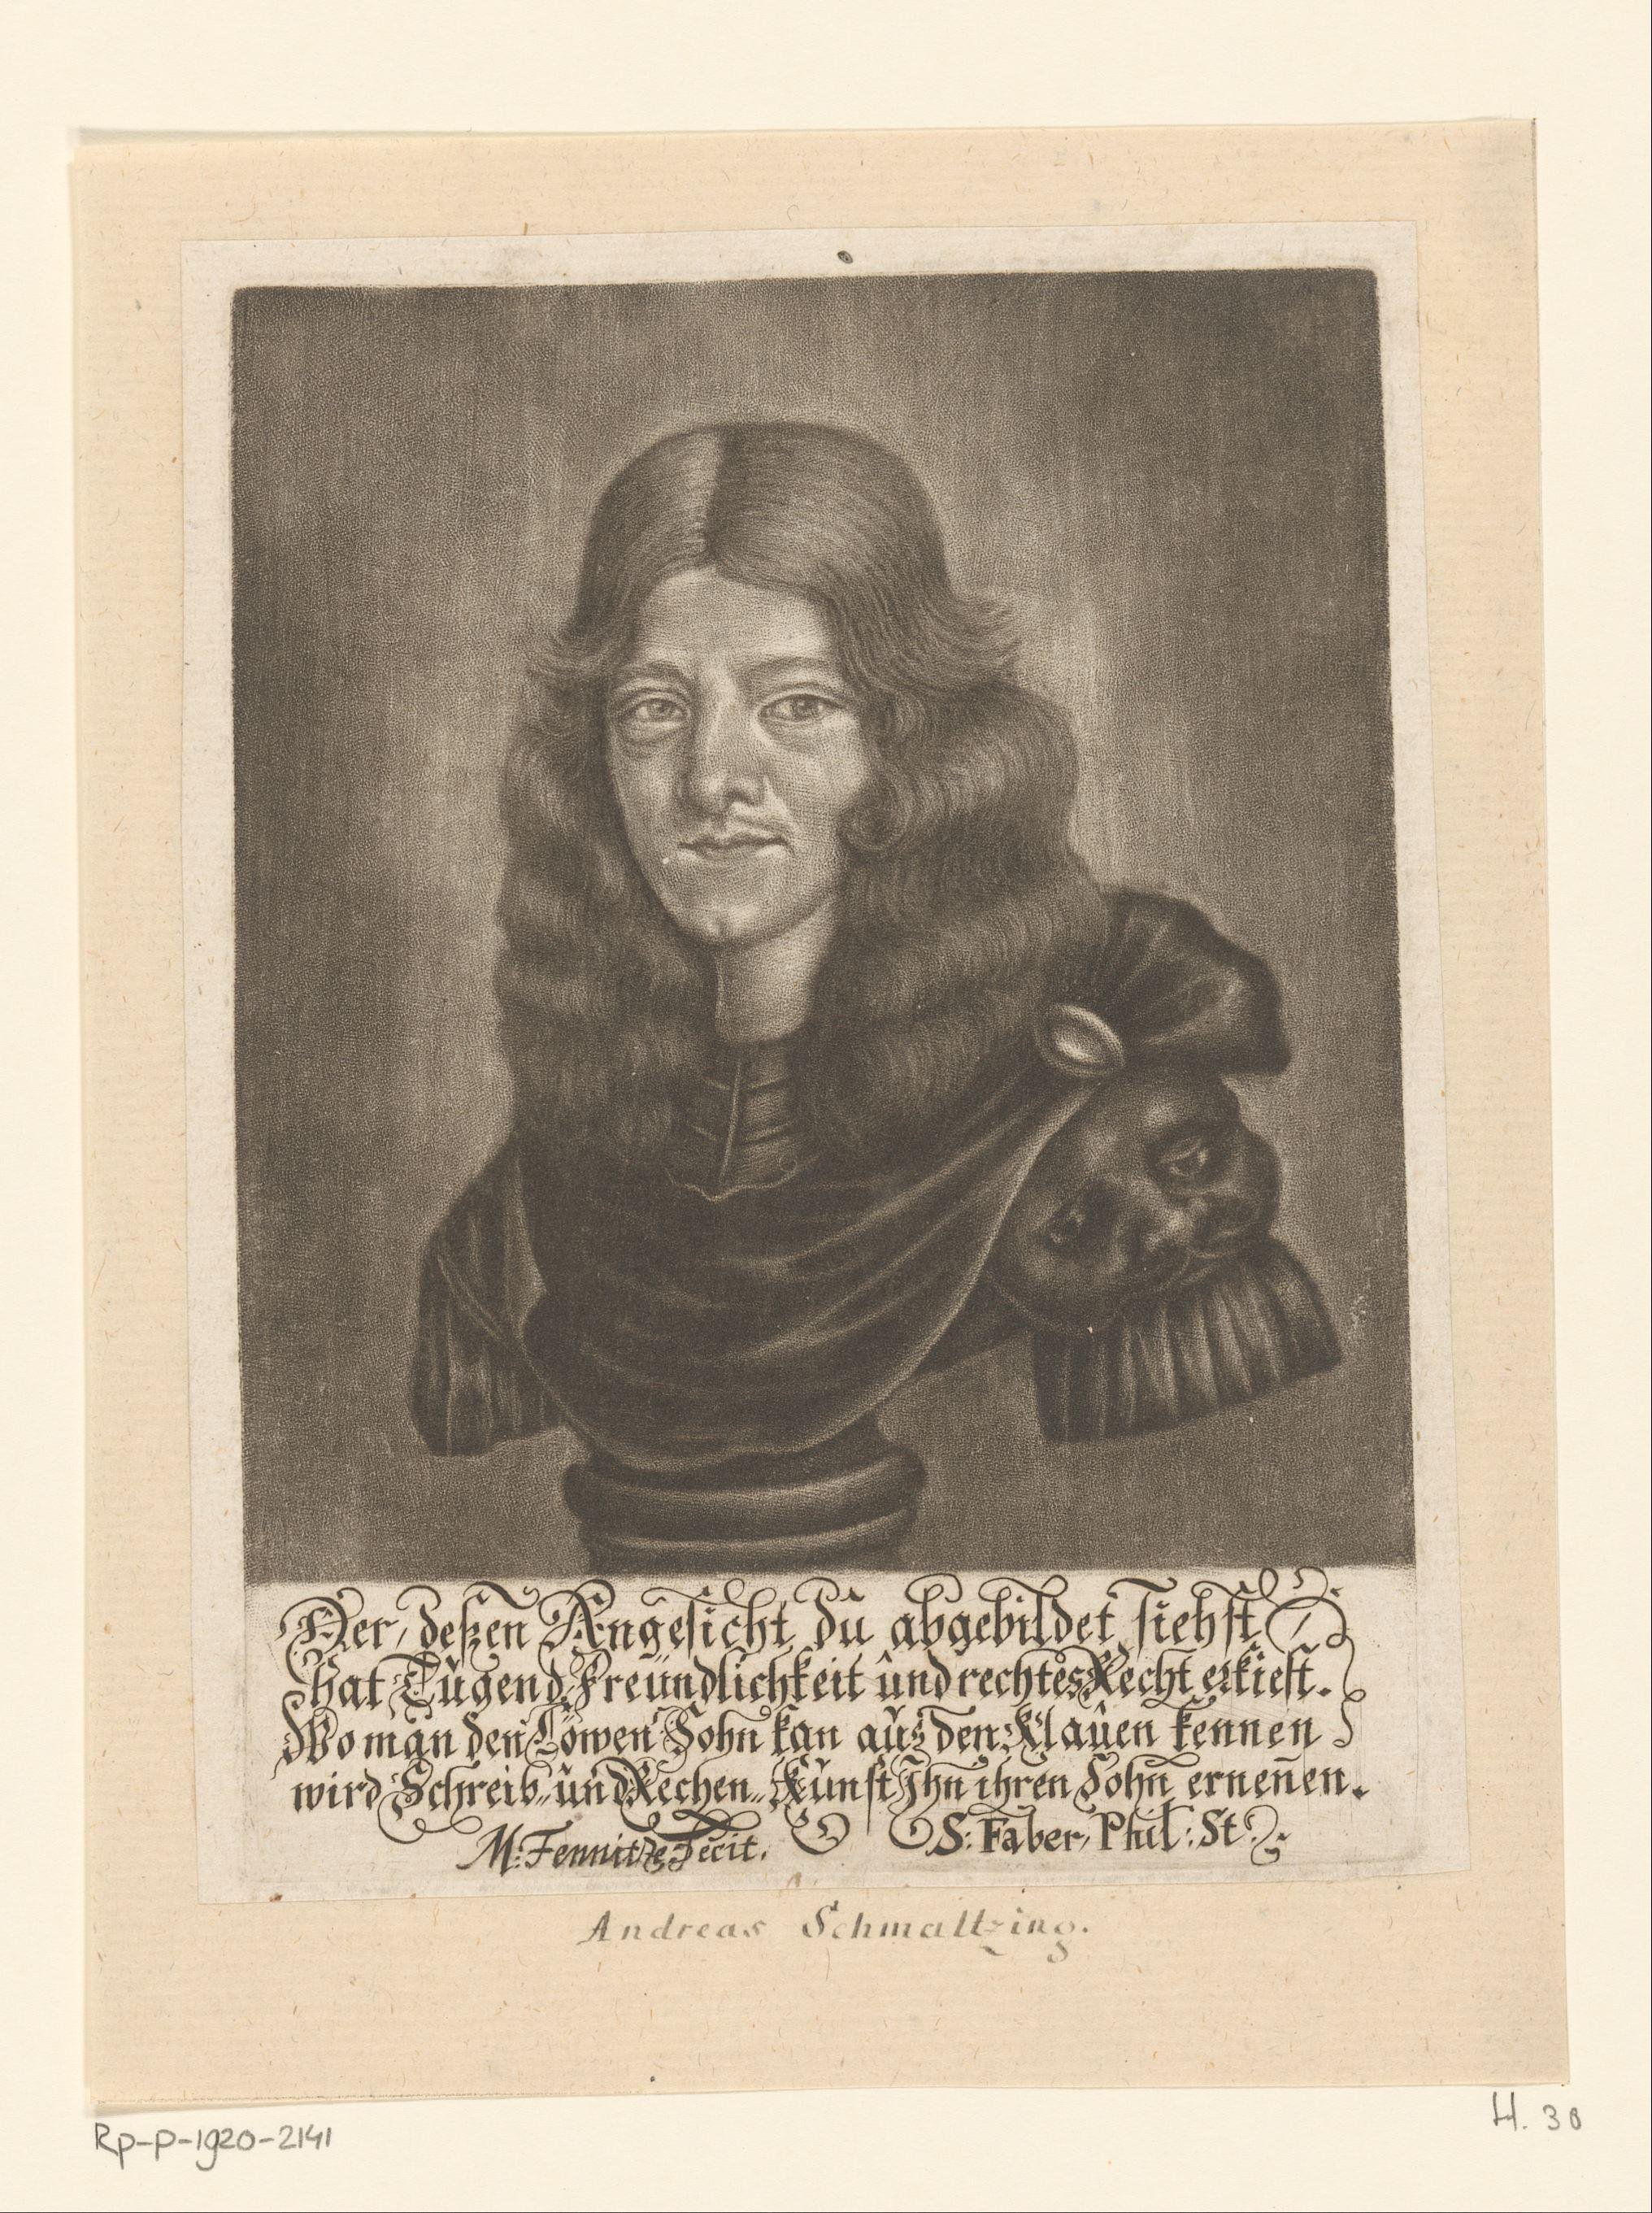 Der, deßen Angesicht du abgebildet siehst
hat Tugend, Freündlichkeit und rechtes Recht erkiest.
Wo man den Löwen Sohn kan aus den Klauen kennen
wird Schreib- und Rechen-Kunst Ihn ihren Sohn ernen̄en.
M: Fennitzer Fecit. S: Faber, Phil: St:
Andreas Schmaltzing.
Rp-P-1920-2141
H. 30